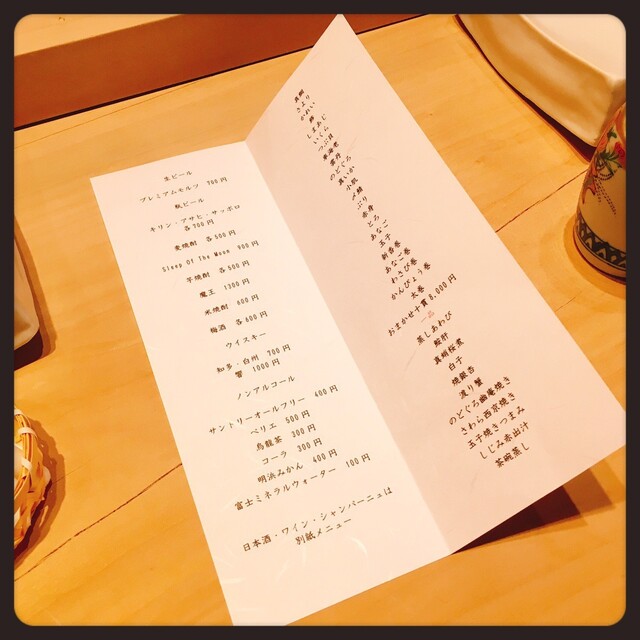 生ビール
プレミアムモルツ 700円
瓶ビール
キリン・アサヒ・サッポロ
各700円
麦焼酎 各500円
Sleep Of The Moon 900円
芋焼酎 各500円
魔王 1300円
米焼酎 600円
梅酒 各600円
ウイスキー
知多・白州 700円
響 1000円
ノンアルコール
サントリーオールフリー 400円
ペリエ 500円
烏龍茶 300円
コーラ 300円
明浜みかん 400円
富士ミネラルウォーター 100円
日本酒・ワイン・シャンパーニュは
別紙メニュー
真鯛
さより
かれい
鯵
しまあじ
いくら
つぶ貝
車海老
雲丹
のどぐろ
真いか
小肌
〆鯖
ぶり
赤身
とろ
あなご
玉子
新香巻
あなご巻
わさび巻
かんぴょう巻
太巻
おまかせ十貫8,000円
一品
蒸しあわび
鮑肝
真蛸桜煮
白子
焼銀杏
渡り蟹
のどぐろ幽庵焼き
さわら西京焼き
玉子焼きつまみ
しじみ赤出汁
茶碗蒸し